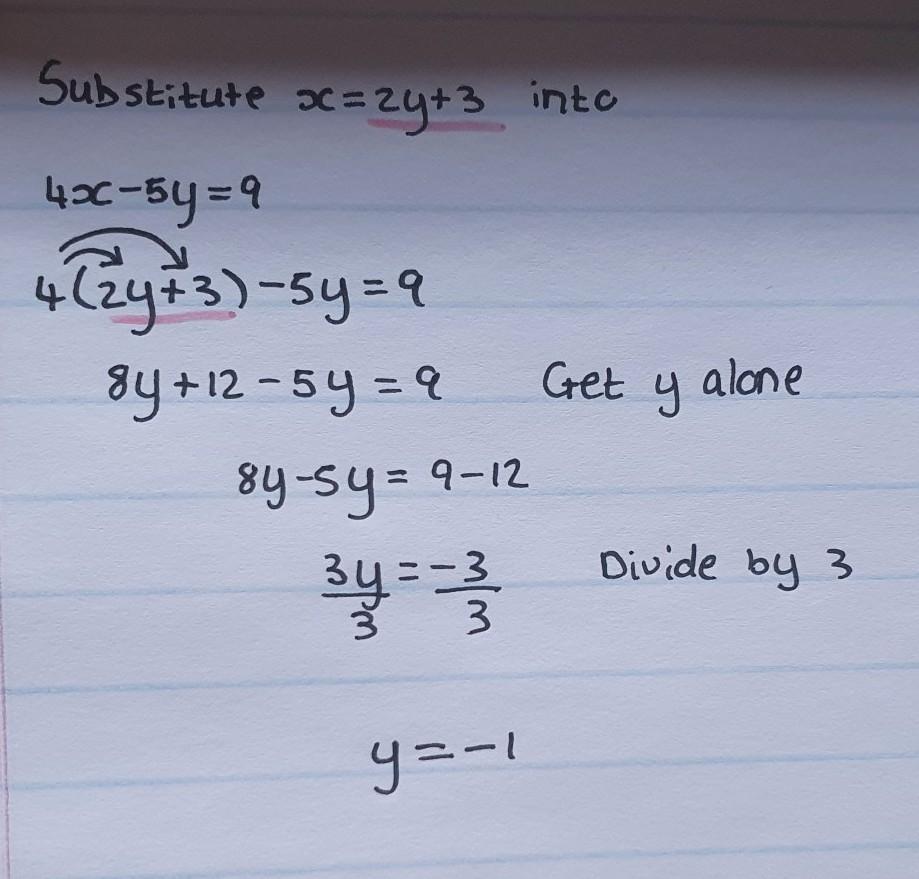 Substitute x=2y+3 into
4x-5y=9
4(2y+3)-5y=9
8y+12-5y=9 Get y alone
8y-5y=9-12
3y=-3 Divide by 3
3 3
y=-1